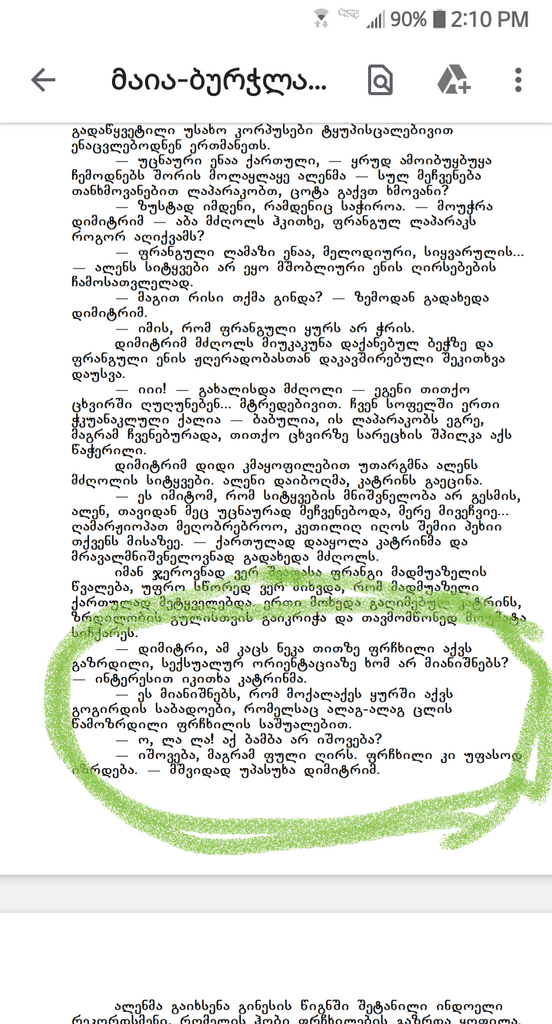 90% 2:10 PM
მაია-ბურჭლა...
გადაწყვეტილი უსახო კორპუსები ტყუპისცალებივით
ენაცვლებოდნენ ერთმანეთს.
— უცნაური ენაა ქართული, — ყრუდ ამოიბუყბუყა
ჩემოდნებს შორის მოლაყლაყე ალენმა — სულ მეჩვენება
თანხმოვანებით ლაპარაკობთ, ცოტა გაქვთ ხმოვანი?
— ზუსტად იმდენი, რამდენიც საჭიროა. — მოუჭრა
დიმიტრიმ — აბა მძღოლს ჰკითხე, ფრანგულ ლაპარაკს
როგორ აღიქვამს?
— ფრანგული ლამაზი ენაა, მელოდიური, სიყვარულის...
— ალენს სიტყვები არ ეყო მშობლიური ენის ღირსებების
ჩამოსათვლელად.
— მაგით რისი თქმა გინდა? — ზემოდან გადახედა
დიმიტრიმ.
— იმის, რომ ფრანგული ყურს არ ჭრის.
დიმიტრიმ მძღოლს მიუკაკუნა დაქანებულ ბეჭზე და
ფრანგული ენის ჟღერადობასთან დაკავშირებული შეკითხვა
დაუსვა.
— იიი! — გახალისდა მძღოლი — ეგენი თითქო
ცხვირში ღუღუნებენ... მტრედებივით. ჩვენ სოფელში ერთი
ჭკუანაკლული ქალია — ბაბულია, ის ლაპარაკობს ეგრე,
მაგრამ ჩვენებურადა, თითქო ცხვირზე სარეცხის შპილკა აქს
წაჭერილი.
დიმიტრიმ დიდი კმაყოფილებით უთარგმნა ალენს
მძღოლის სიტყვები. ალენი დაიბოღმა, კატრინს გაეცინა.
— ეს იმიტომ, რომ სიტყვების მნიშვნელობა არ გესმის,
ალენ, თავიდან მეც უცნაურად მეჩვენებოდა, მერე მივეჩვიე...
ღამარჟიოპათ მეღობრებროო, კეთილიღ იღოს შემიი პეხიი
თქვენს მისაზეე. — ქართულად დააყოლა კატრინმა და
მრავალმნიშვნელოვნად გადახედა მძღოლს.
იმან ჯეროვნად ვერ შეაფასა ფრანგი მადმუაზელის
წვალება, უფრო სწორედ ვერ მიხვდა, რომ მადმუაზელი
ქართულად მეტყველებდა. ერთი მოხედა გაღიმებულ კატრინს,
ზრდილობის გულისთვის გაიკრიჭა და თავმომწონედ მოუმატა
სიჩქარეს.
— დიმიტრი, ამ კაცს ნეკა თითზე ფრჩხილი აქვს
გაზრდილი, სექსუალურ ორიენტაციაზე ხომ არ მიანიშნებს?
— ინტერესით იკითხა კატრინმა.
— ეს მიანიშნებს, რომ მოქალაქეს ყურში აქვს
გოგირდის საბადოები, რომელსაც ალაგ-ალაგ ცლის
წამოზრდილი ფრჩხილის საშუალებით.
— ო, ლა ლა! აქ ბამბა არ იშოვება?
— იშოვება, მაგრამ ფული ღირს. ფრჩხილი კი უფასოდ
იზრდება. — მშვიდად უპასუხა დიმიტრიმ.
ალენმა გაიხსენა გინესის წიგნში შეტანილი ინდოელი
რეკორდსმენი, რომელის ჰობი ფრჩხილების გაზრდა ყოფილა.